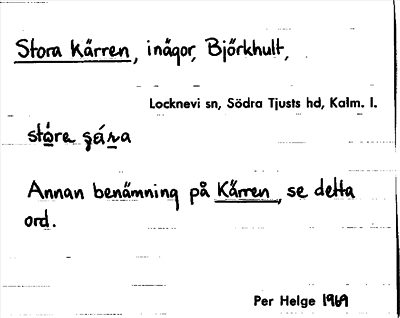 Stora Kärren, inägor, Björkhult,
Locknevi sn, Södra Tjusts hd, Kalm. l.
Annan benämning på Kärren, se detta
ord.
Per Helge 1969